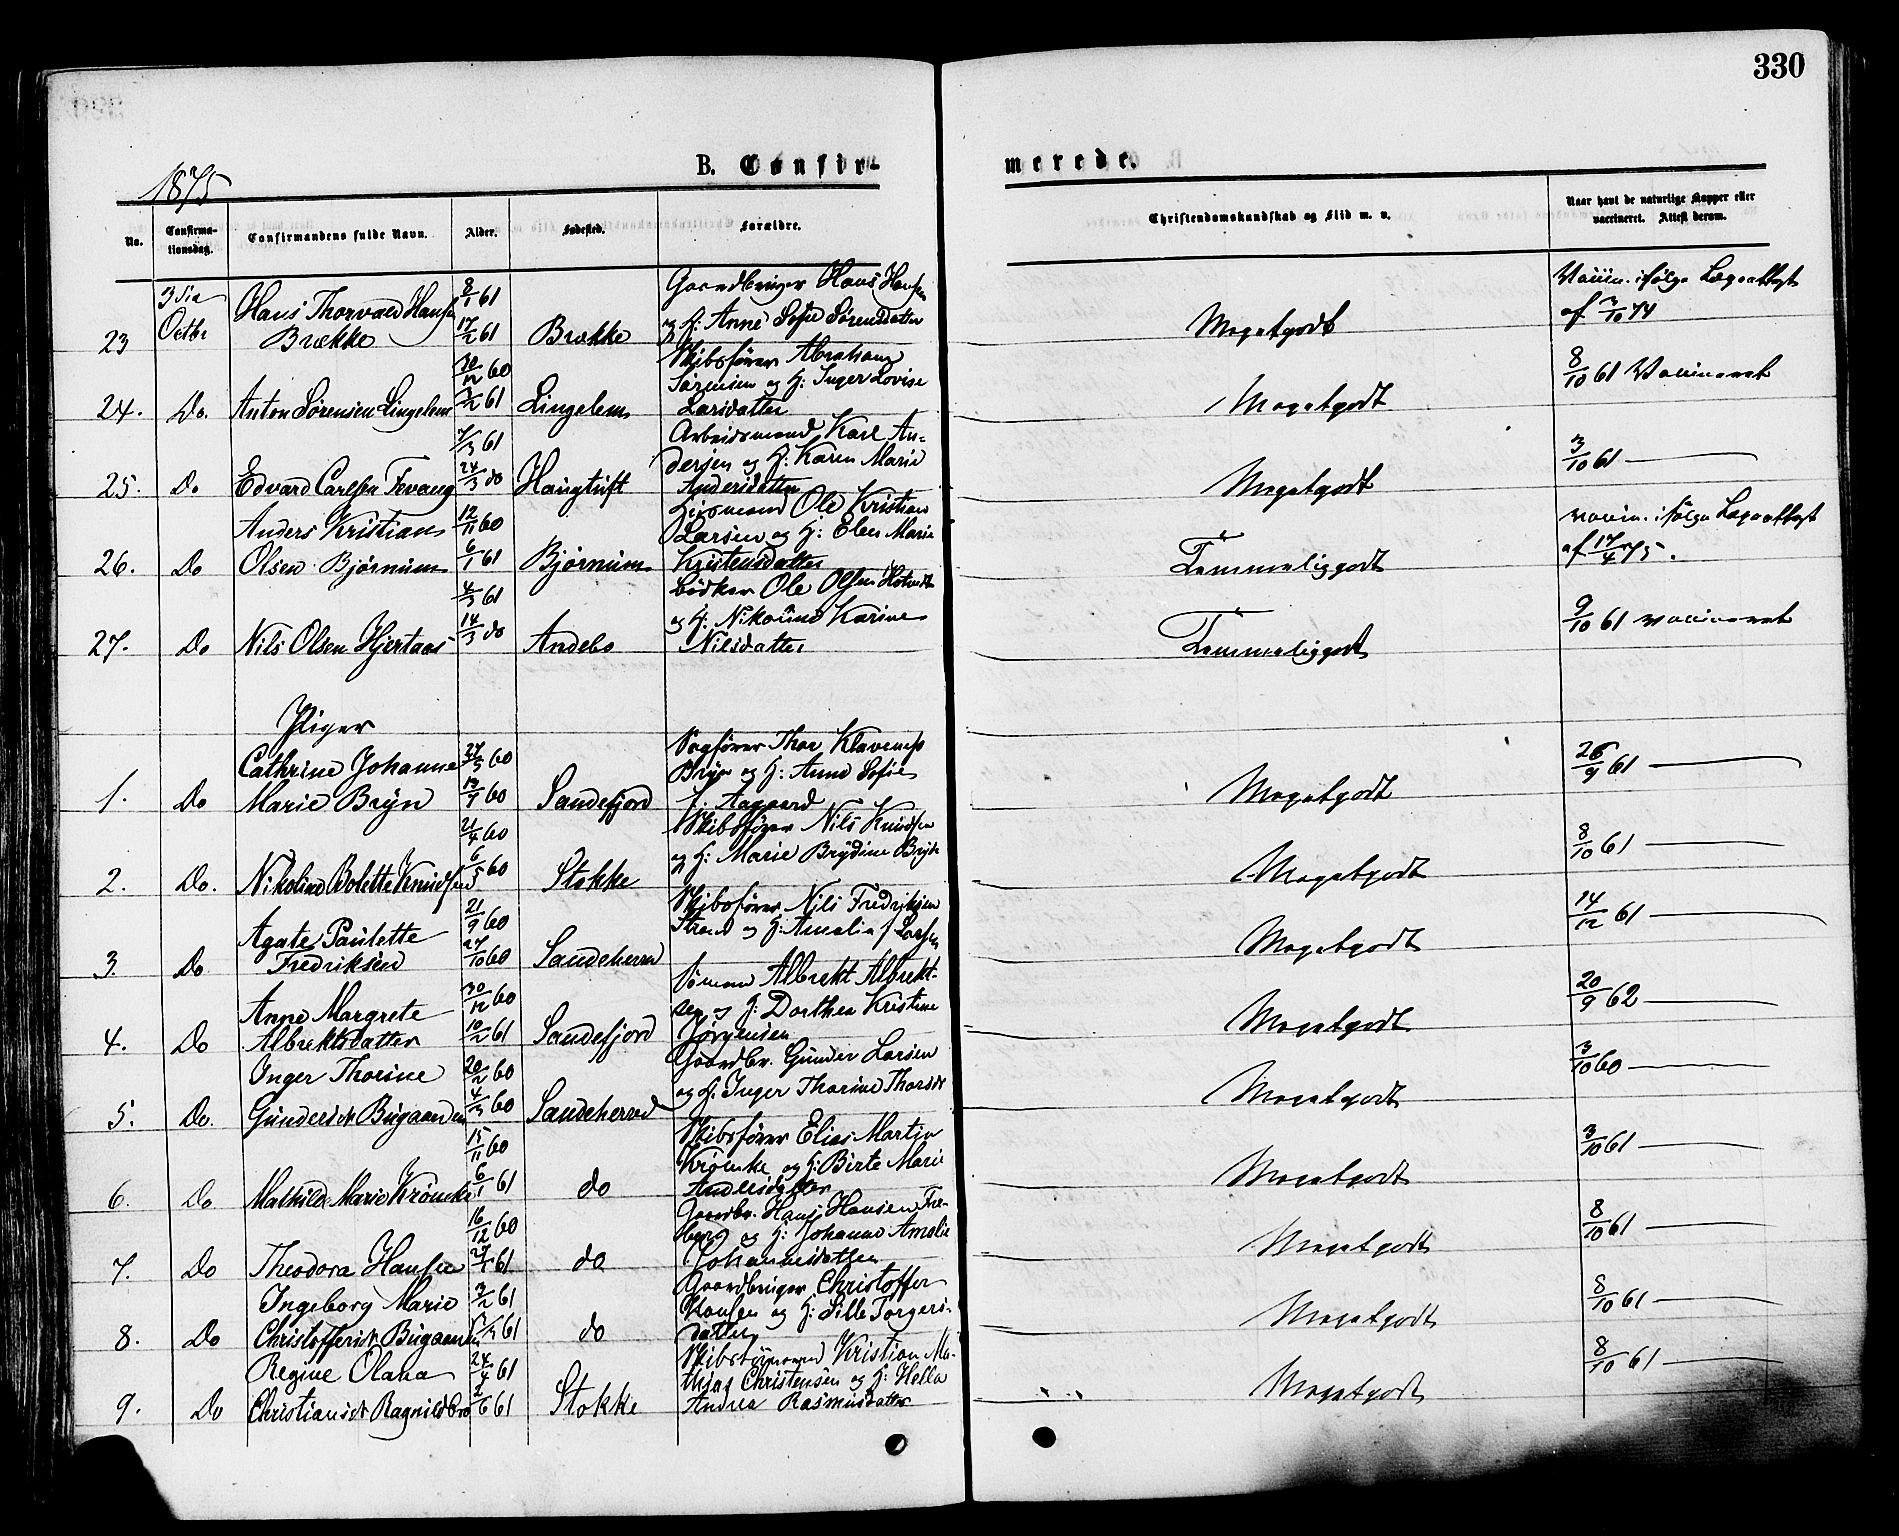 330
1875
B. Confir-
merede.
No.
Confirma-
tionsdag.
Confirmandens fulde Navn.
Alder.
Fødested.
Forældre.
Christendomskundskab og Flid m. v.
Naar havt de naturlige Kopper eller
vaccineret. Attest derom.
3die
Octbr
23
Hans Thorvald Hansen
Brække
8/1 61
17/2 61
Brække
Gaardbruger Hans Hansen
og H: Anne Sofie Sørensdatter
Megetgodt
Vaccin. ifølge Lægeattest
af 3/10 74
24.
Do.
Anton Sørensen Lingelem
30/12 60
3/2 61
Lingelem
Skibsfører Abraham
Sørensen og H: Inger Lovise
Larsdatter
Megetgodt
8/10 61 Vaccineret
25.
Do
Edvard Carlsen Fevang
7/3 61
24/3 do
Haugtuft
Arbeidsmand Karl An-
dersen og H: Karen Marie
Andersdatter
Megetgodt
3/10 61 —
26.
Do
Anders Kristian
Olsen Bjørnum
12/11 60
6/1 61
Bjørnum
Leismand Ole Kristian
Larsen og H: Elen Marie
Kristensdatter
Temmeliggodt
vaccin. ifølge Lægeattest
af 17/4 75.
27.
Do
Nils Olsen Hjertaas
4/3 61
14/3 do
Andebo
Bødker Ole Olsen
og H: Nikoline Karine
Nilsdatter
Temmeliggodt
9/10 61 vaccineret
Piger
1.
Do
Cathrine Johanne
Marie Bryn
27/5 60
13/7 60
Sandefjord
Sagfører Thor Klavenes
Bryn og H: Anne Sofie
f. Aagaard
Megetgodt
26/9 61 —
2.
Do.
Nikoline Bolette Knudsen
21/4 60
6/5 60
Stokke
Skibsfører Nils Knudsen
og H: Marie Brydine Bryde
Megetgodt
8/10 61 —
3.
Do
Agate Paulette
Fredriksen
21/9 60
27/10 60
Sandeherred
Skibsfører Nils Fredriksen
Strand og H: Amalia f. Larsen
Megetgodt
14/12 61 —
4.
Do
Anne Margrete
Albrektsdatter
30/12 60
10/2 61
Sandefjord
Sømand Albrekt Albrekt-
sen og H: Dorthea Kristine
Jørgensen
Megetgodt
20/9 62 —
5.
Do.
Inger Thorine
Gundersdt Bugaarden
20/2 60
4/3 60
Sandeherred
Gaardbr. Gunder Larsen
og H: Inger Thorine Thorsdt
Megetgodt
3/10 60 —
6.
Do
Mathilde Marie Krømke
15/11 60
6/1 61
do
Skibsfører Elias Martin
Krømke og H: Birte Marie
Andersdatter
Megetgodt
3/10 61 —
7.
Do
Theodora Hansen
16/12 60
27/1 61
do
Gaardbr. Hans Hansen Fre-
berg og H: Johanne Amalie
Johannesdatter
Megetgodt
8/10 61 —
8.
Do
Ingeborg Marie
Christoffersdt Bugaarden
3/2 61
61
do
Gaardbruger Christoffer
Hansen og H: Sille Torgers-
datter
Megetgodt
8/10 61 —
9.
Do
Regine Olava
Christiansdt Ragnildsbro
24/4 61
2/6 61
Stokke
Skibstømmermand Kristian Ma-
thias Christensen og H: Hella
Andrea Rasmusdatter
Megetgodt
8/10 61 —